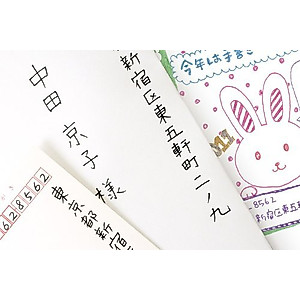 新宿区東五軒町二ノ九
中田京子
様
東京都新宿
628562
今年は手書き
-8562
新宿区東五軒